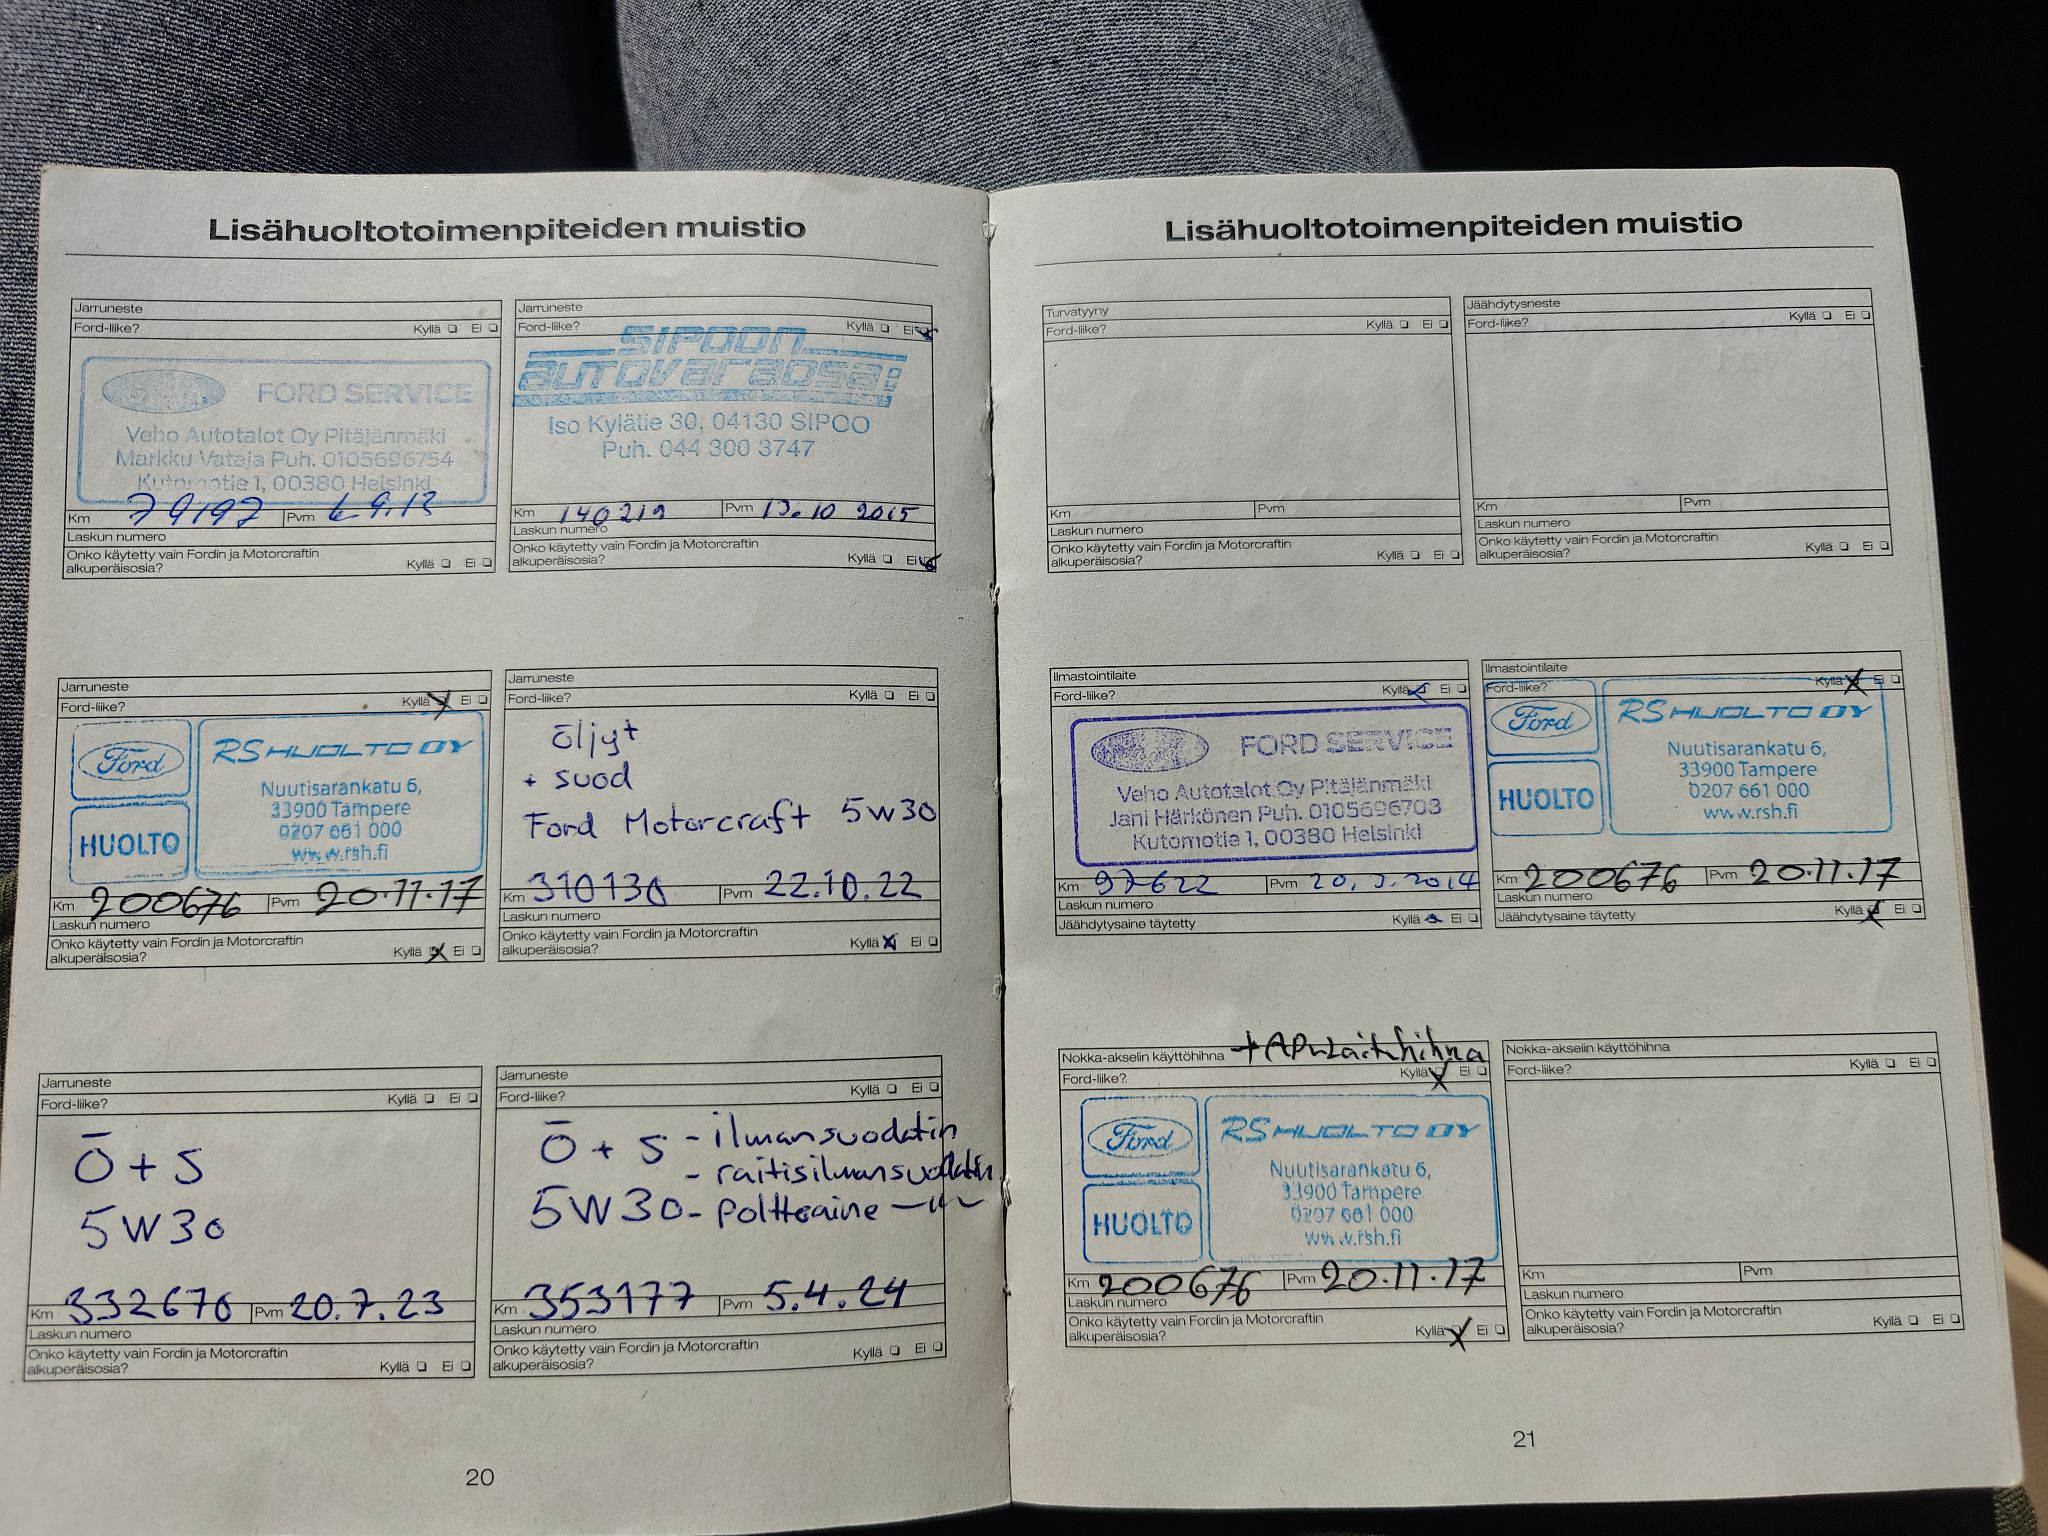 Lisähuoltotoimenpiteiden muistio
Jarruneste
Ford-liike? Kyllä ❑ Ei ❑
FORD SERVICE
Veho Autotalot Oy Pitäjänmäki
Markku Vataja Puh. 0105696754
Kutomotie 1, 00380 Helsinki
Km 79197 Pvm 6.9.13
Laskun numero
Onko käytetty vain Fordin ja Motorcraftin
alkuperäisosia? Kyllä ❑ Ei ❑
Jarruneste
Ford-liike? Kyllä ❑ Ei ❑
SIPOON
AUTOVARAOSA
Iso Kylätie 30, 04130 SIPOO
Puh. 044 300 3747
Km 140219 Pvm 13.10 2015
Laskun numero
Onko käytetty vain Fordin ja Motorcraftin
alkuperäisosia? Kyllä ❑ Ei ❑
Jarruneste
Ford-liike? Kyllä X Ei ❑
Ford
HUOLTO
RS HUOLTO OY
Nuutisarankatu 6,
33900 Tampere
0207 661 000
www.rsh.fi
Km 200676 Pvm 20.11.17
Laskun numero
Onko käytetty vain Fordin ja Motorcraftin
alkuperäisosia? Kyllä X Ei ❑
Jarruneste
Ford-liike? Kyllä ❑ Ei ❑
öljyt
+ suod
Ford Motorcraft 5W30
Km 310130 Pvm 22.10.22
Laskun numero
Onko käytetty vain Fordin ja Motorcraftin
alkuperäisosia? Kyllä X Ei ❑
Jarruneste
Ford-liike? Kyllä ❑ Ei ❑
Ö + S
5W30
Km 332670 Pvm 20.7.23
Laskun numero
Onko käytetty vain Fordin ja Motorcraftin
alkuperäisosia? Kyllä ❑ Ei ❑
Jarruneste
Ford-liike? Kyllä ❑ Ei ❑
Ö + S - ilmansuodatin
- raitisilmansuodatin
5W30 - Polttoaine -"-
Km 353177 Pvm 5.4.24
Laskun numero
Onko käytetty vain Fordin ja Motorcraftin
alkuperäisosia? Kyllä ❑ Ei ❑
20
Lisähuoltotoimenpiteiden muistio
Turvatyyny
Ford-liike? Kyllä ❑ Ei ❑
Km Pvm
Laskun numero
Onko käytetty vain Fordin ja Motorcraftin
alkuperäisosia? Kyllä ❑ Ei ❑
Jäähdytysneste
Ford-liike? Kyllä ❑ Ei ❑
Km Pvm
Laskun numero
Onko käytetty vain Fordin ja Motorcraftin
alkuperäisosia? Kyllä ❑ Ei ❑
Ilmastointilaite
Ford-liike? Kyllä ❑ Ei ❑
FORD SERVICE
Veho Autotalot Oy Pitäjänmäki
Jani Härkönen Puh. 0105696703
Kutomotie 1, 00380 Helsinki
Km 97622 Pvm 20.3.2014
Laskun numero
Jäähdytysaine täytetty Kyllä ❑ Ei ❑
Ilmastointilaite
Ford-liike? Kyllä X Ei ❑
Ford
HUOLTO
RS HUOLTO OY
Nuutisarankatu 6,
33900 Tampere
0207 661 000
www.rsh.fi
Km 200676 Pvm 20.11.17
Laskun numero
Jäähdytysaine täytetty Kyllä X Ei ❑
Nokka-akselin käyttöhihna + APulaitehihna
Ford-liike? Kyllä X Ei ❑
Ford
HUOLTO
RS HUOLTO OY
Nuutisarankatu 6,
33900 Tampere
0207 661 000
www.rsh.fi
Km 200676 Pvm 20.11.17
Laskun numero
Onko käytetty vain Fordin ja Motorcraftin
alkuperäisosia? Kyllä X Ei ❑
Nokka-akselin käyttöhihna
Ford-liike? Kyllä ❑ Ei ❑
Km Pvm
Laskun numero
Onko käytetty vain Fordin ja Motorcraftin
alkuperäisosia? Kyllä ❑ Ei ❑
21